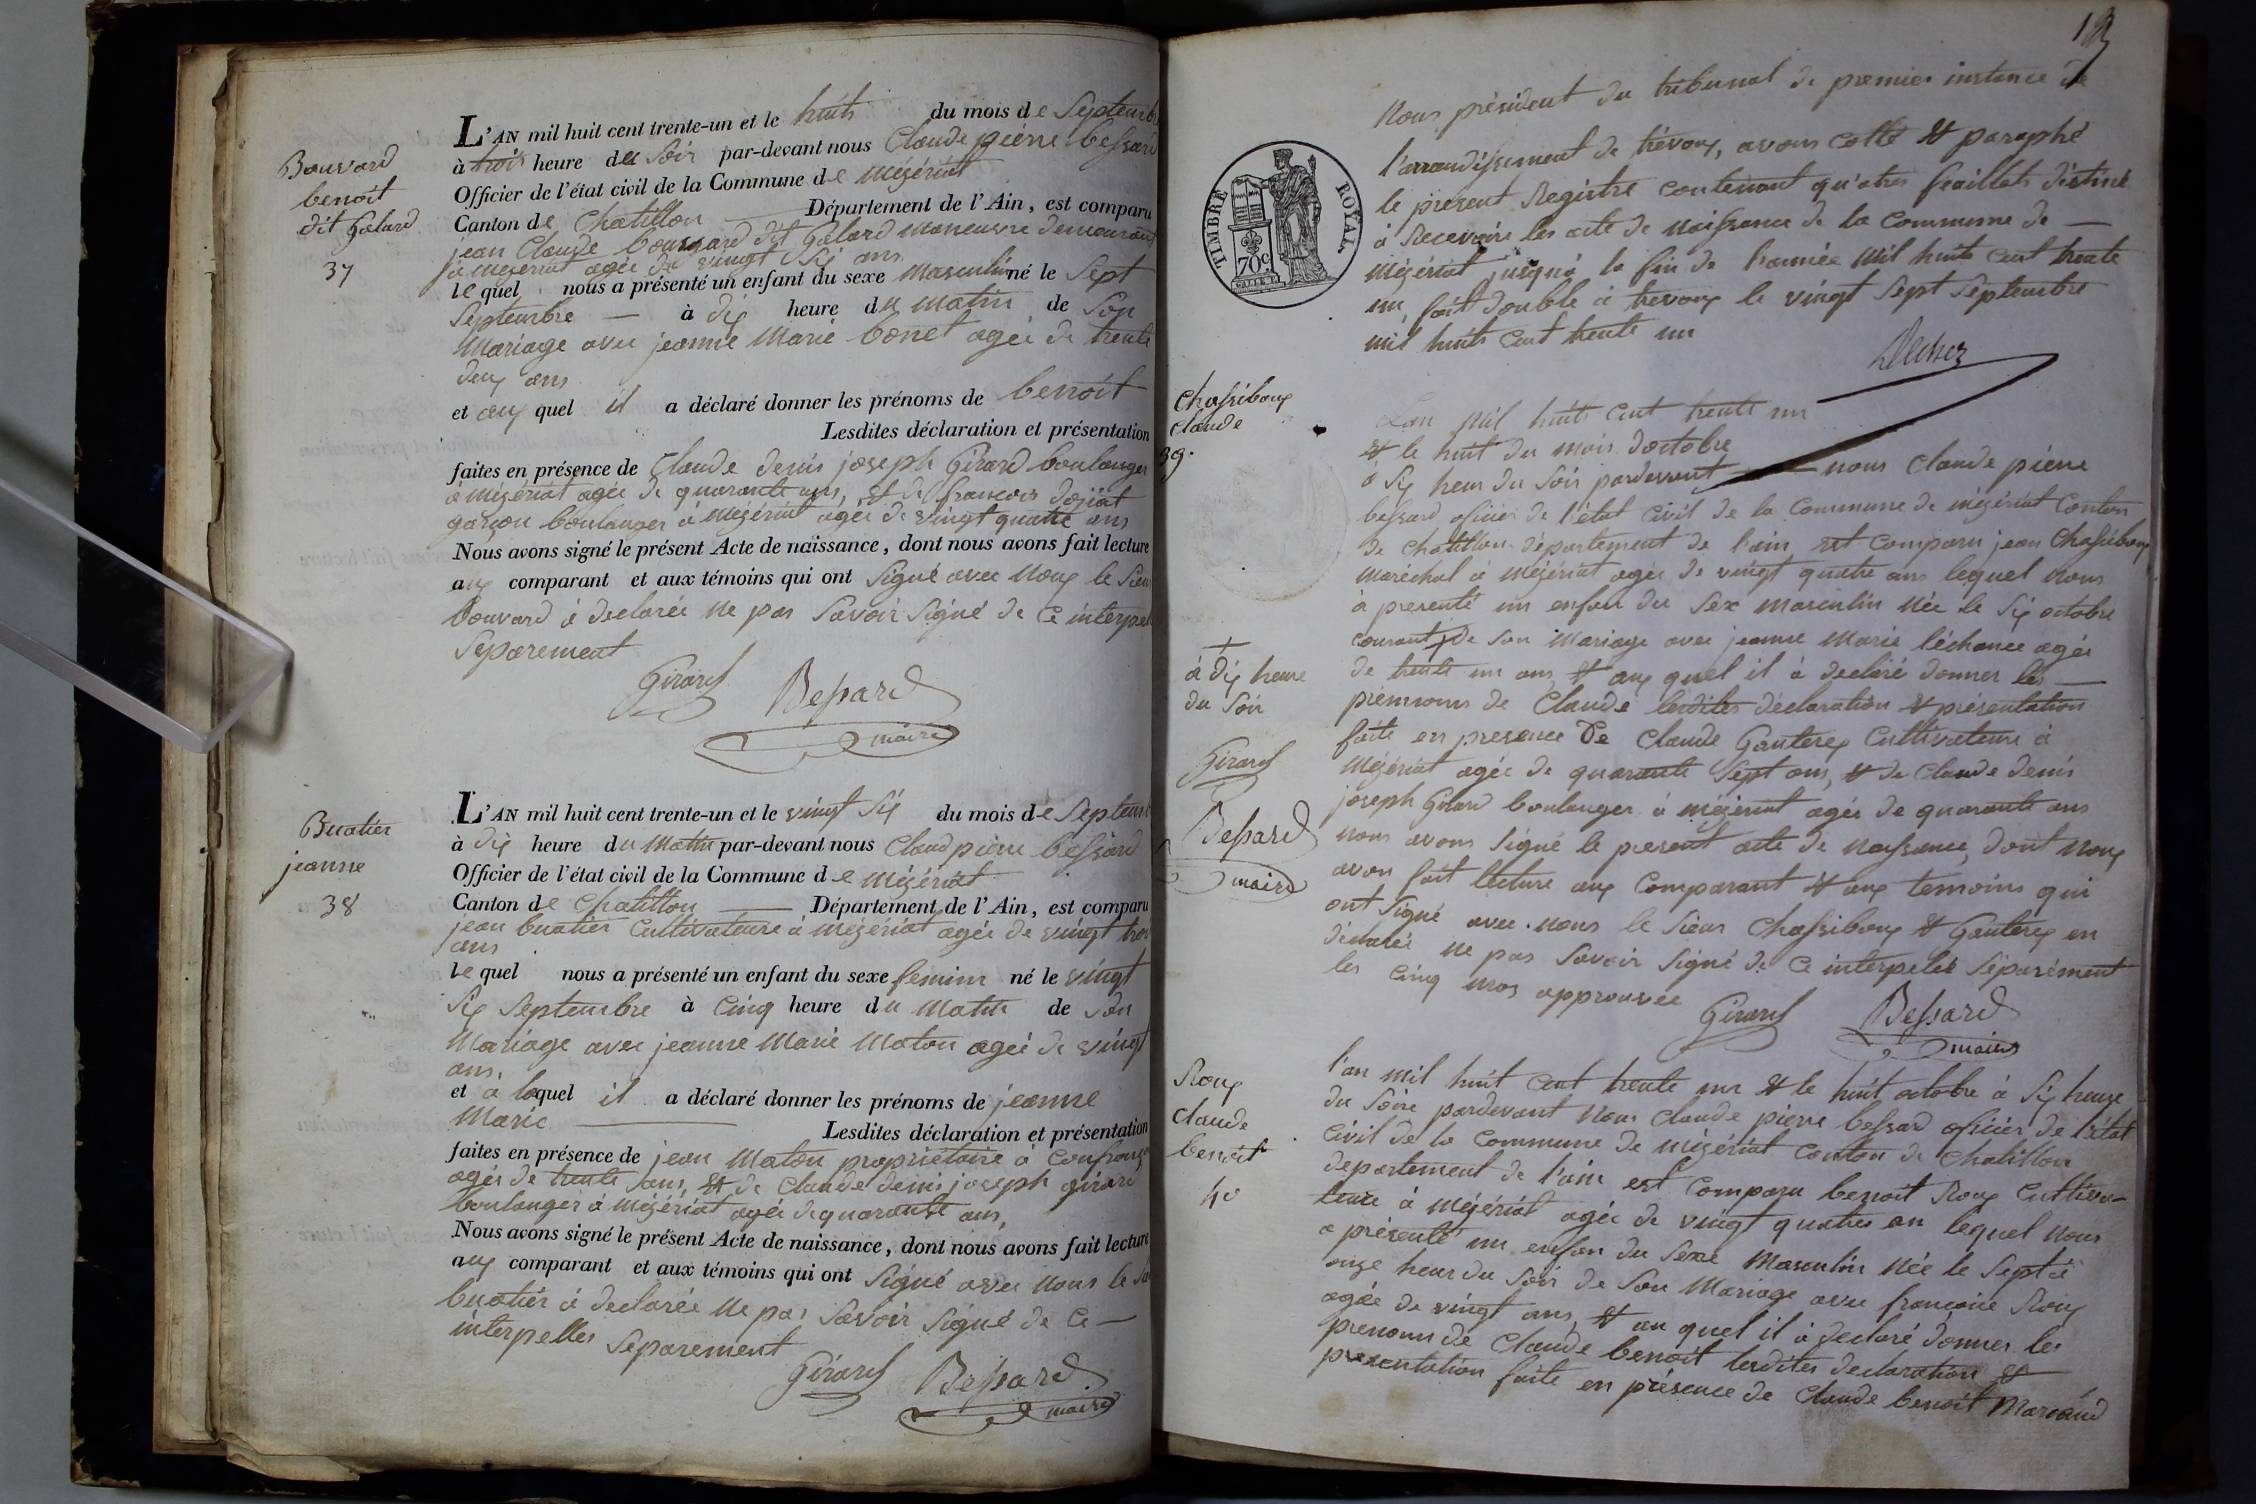 Bouvard
benoit
dit Galard
37
L'AN mil huit cent trente-un et le huits du mois de Septembre
à trois heure du Soir par-devant nous Claude pierre bessard
Officier de l'état civil de la Commune de mézériat
Canton de Chatillon — Département de l'Ain, est comparu
jean Claude bouvard dit Galard manoeuvre demeurant
à mézériat agée de vingt six ans
le quel nous a présenté un enfant du sexe masculin né le Sept
Septembre — à dix heure du matin de Son
Mariage avec jeanne Marie bonet agée de trente
deux ans
et aux quel il a déclaré donner les prénoms de benoit
Lesdites déclaration et présentation
faites en présence de Claude denis joseph Girard boulanger
à mézériat agée de quarante ans, et de francois
garçon boulanger à mézériat agée de vingt quatre ans
Nous avons signé le présent Acte de naissance, dont nous avons fait lecture
aux comparant et aux témoins qui ont Signé avec Nous le Sieur
bouvard à declarée ne pas Savoir Signé de ce interpel
Séparement
Girard Bessard
maire
Buatier
jeanne
38
L'AN mil huit cent trente-un et le vingt Six du mois de Septembre
à dix heure du Matin par-devant nous Claud pierre bessard
Officier de l'état civil de la Commune de mézériat
Canton de Chatillon — Département de l'Ain, est comparu
jean buatier Cultivateure à mézériat agée de vingt trois
ans
le quel nous a présenté un enfant du sexe feminin né le vingt
Six Septembre à Cinq heure du Matin de Son
Mariage avec jeanne Marie Maton agée de vingt
ans,
et à laquel il a déclaré donner les prénoms de jeanne
Marie — Lesdites déclaration et présentation
faites en présence de jean Maton propriétaire à Confrançon
agée de trente ans, et de Claude denis joseph girard
boulanger à mézériat agée de quarante ans,
Nous avons signé le présent Acte de naissance, dont nous avons fait lecture
aux comparant et aux témoins qui ont Signé avec nous le
buatier à declarée ne pas Savoir Signé de Ce —
interpelles Séparement
Girard Bessard
maire
Nous président du tribunal de premier instance de
l'arrondissement de trévoux, avons cotté et paraphé
le présent Registre contenant quatres feuillets destiné
à Recevoire les acte de Naissance de la Commune de —
Mézériat jusqu'à la fin de l'année Mil huits cent trente
un, fait double à trevoux le vingt Sept Septembre
mil huits Cent trente un
TIMBRE ROYAL
70c.
Chassiboux
Claude
39.
L'an Mil huits Cent trente un
et le huit du mois d'octobre
à Six heur du Soir pardevant nous Claude pierre
bessard oficier de l'état Civil de la Commune de mézériat Conton
de Chatillon département de l'ain est Comparu jean Chassiboux
maréchal à mézériat agée de vingt quatre ans lequel Nous
à presenté un enfan du Sex masculin née le Six octobre
courant + de Son Mariage avec jeanne Marie léchance agée
de trente un ans et aux quel il à declaré donner les —
prénnoms de Claude lesdites déclaration et présentation
faite en presence de Claude Gauterex Cultivateure à
Mézériat agée de quarante Sept ans, et de Claude denis
joseph Girard boulanger à mézériat agée de quarante ans
nous avons Signé le present acte de naissance, dont nous
avon fait lecture aux Comparant et aux temoins qui
ont Signé avec nous le Sieur Chassiboux et Gauterex en
déclarée ne pas Savoir Signé de Ce interpelée Séparément
les Cinq mos approuvée
Girard Bessard
maire
+
à dix heure
du Soir
Girard
Bessard
maire
Roux
Claude
benoit
40
l'an Mil huit Cent trente un et le huit octobre à Six heure
du Soire pardevant Nous Claude pierre bessard oficier de l'état
Civil de la Commune de mézériat Conton de Chatillon
departement de l'ain est Comparu benoit Roux Cultiva-
teure à Mézériat agée de vingt quatres an lequel nous
a présenté un enfan du Sexe Masculin née le Sept à
onze heur du Soir de Son Mariage avec francoise Roux
agée de vingt ans, et au quel il à declaré donner les
prenoms de Claude benoit lesdites declaration et
presentation faite en présence de Claude benoit